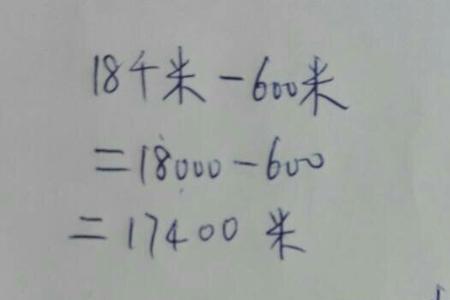 18千米-600米
=18000-600
=17400 米